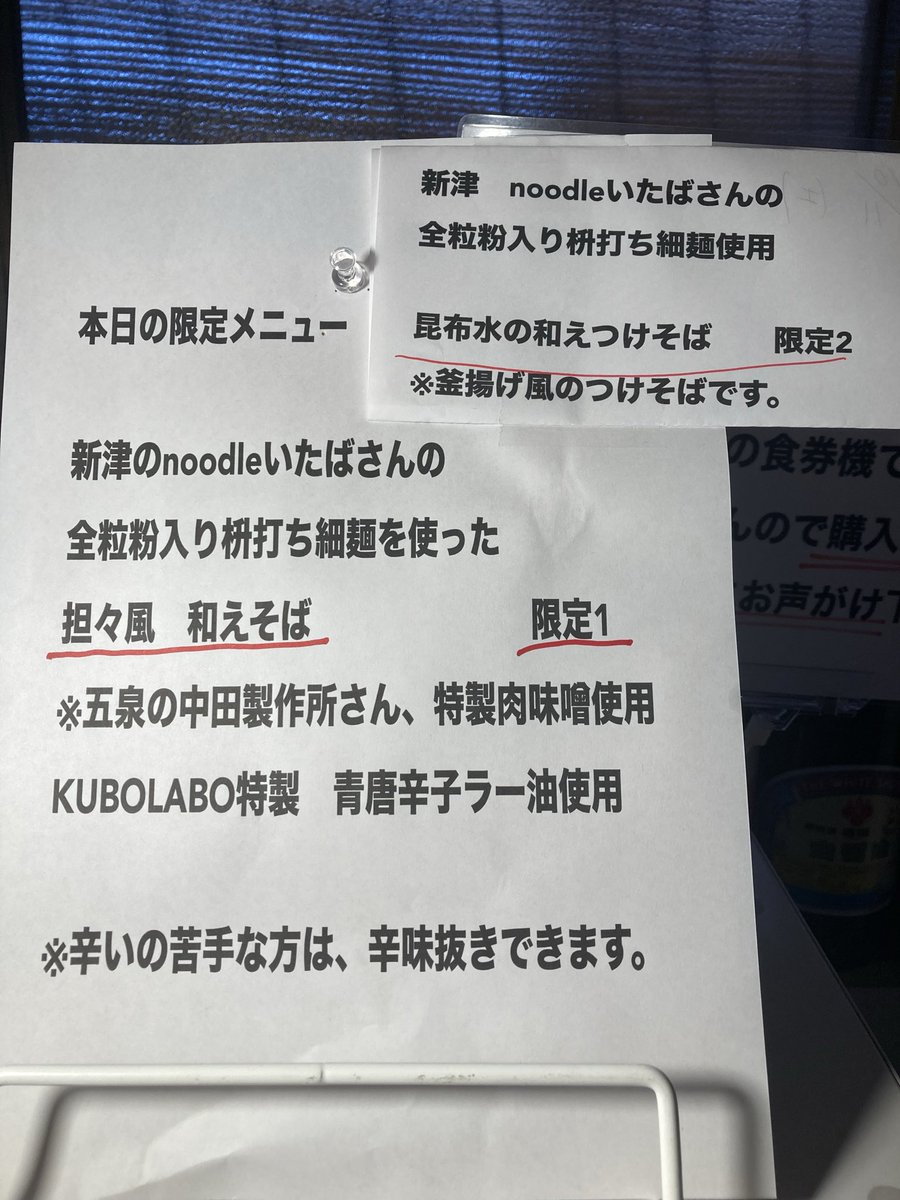 本日の限定メニュー
新津のnoodleいたばさんの
全粒粉入り枡打ち細麺を使った
担々風 和えそば 限定1
※五泉の中田製作所さん、特製肉味噌使用
KUBOLABO特製 青唐辛子ラー油使用
※辛いの苦手な方は、辛味抜きできます。
新津 noodleいたばさんの
全粒粉入り枡打ち細麺使用
昆布水の和えつけそば 限定2
※釜揚げ風のつけそばです。
の食券機で
んので購入
お声がけ